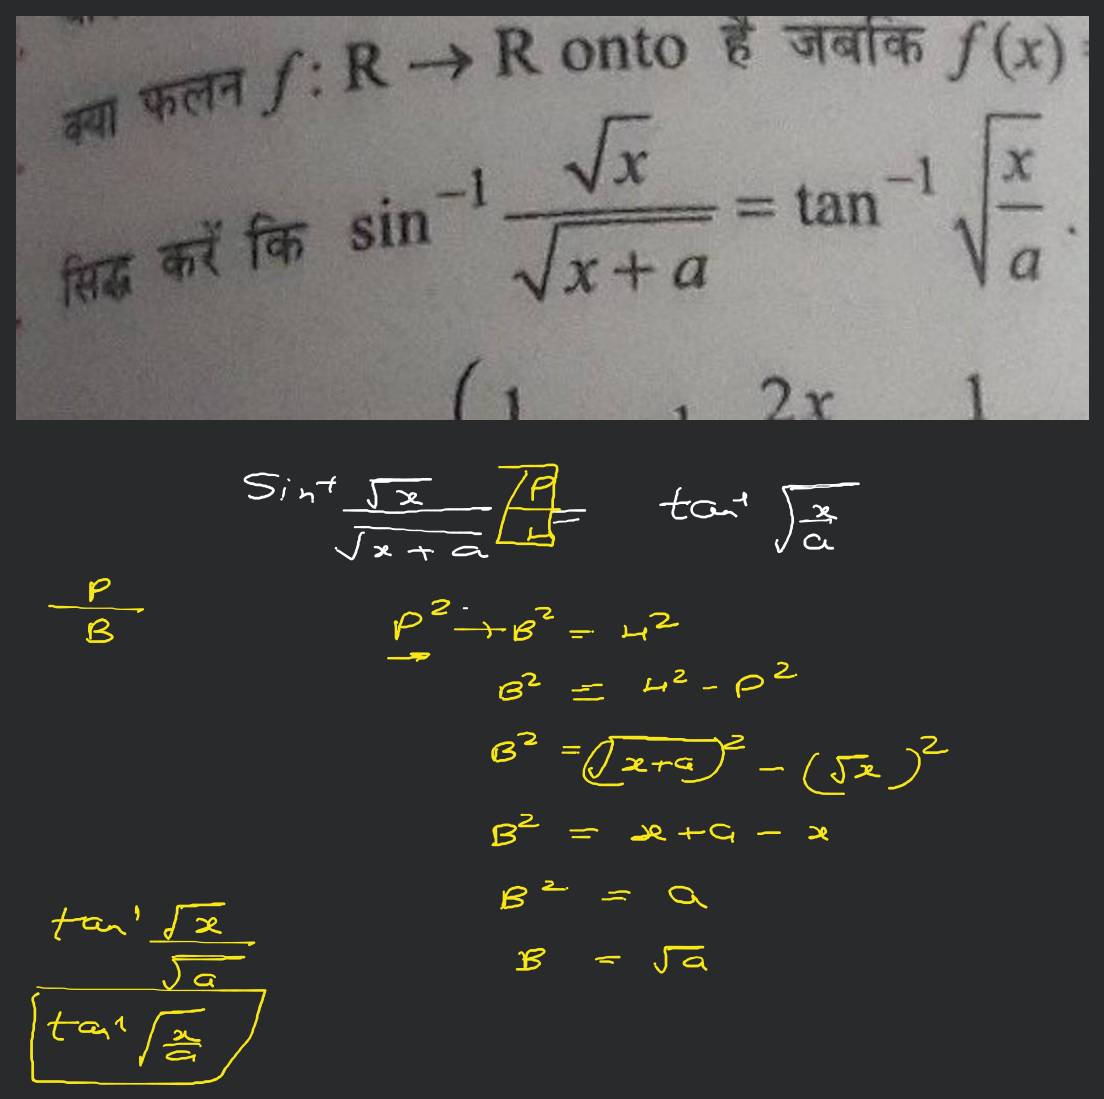 क्या फलन f : R → R onto है जबकि f(x) =
सिद्ध करें कि sin⁻¹ √x / √(x + a) = tan⁻¹ √(x/a) .
2x 1
Sin⁻¹ √x / √(x + a) = tan⁻¹ √(x/a)
P / H
P / B
P² + B² = H²
B² = H² - P²
B² = (√(x+a))² - (√x)²
B² = x + a - x
B² = a
B = √a
tan⁻¹ √x / √a
tan⁻¹ √(x/a)